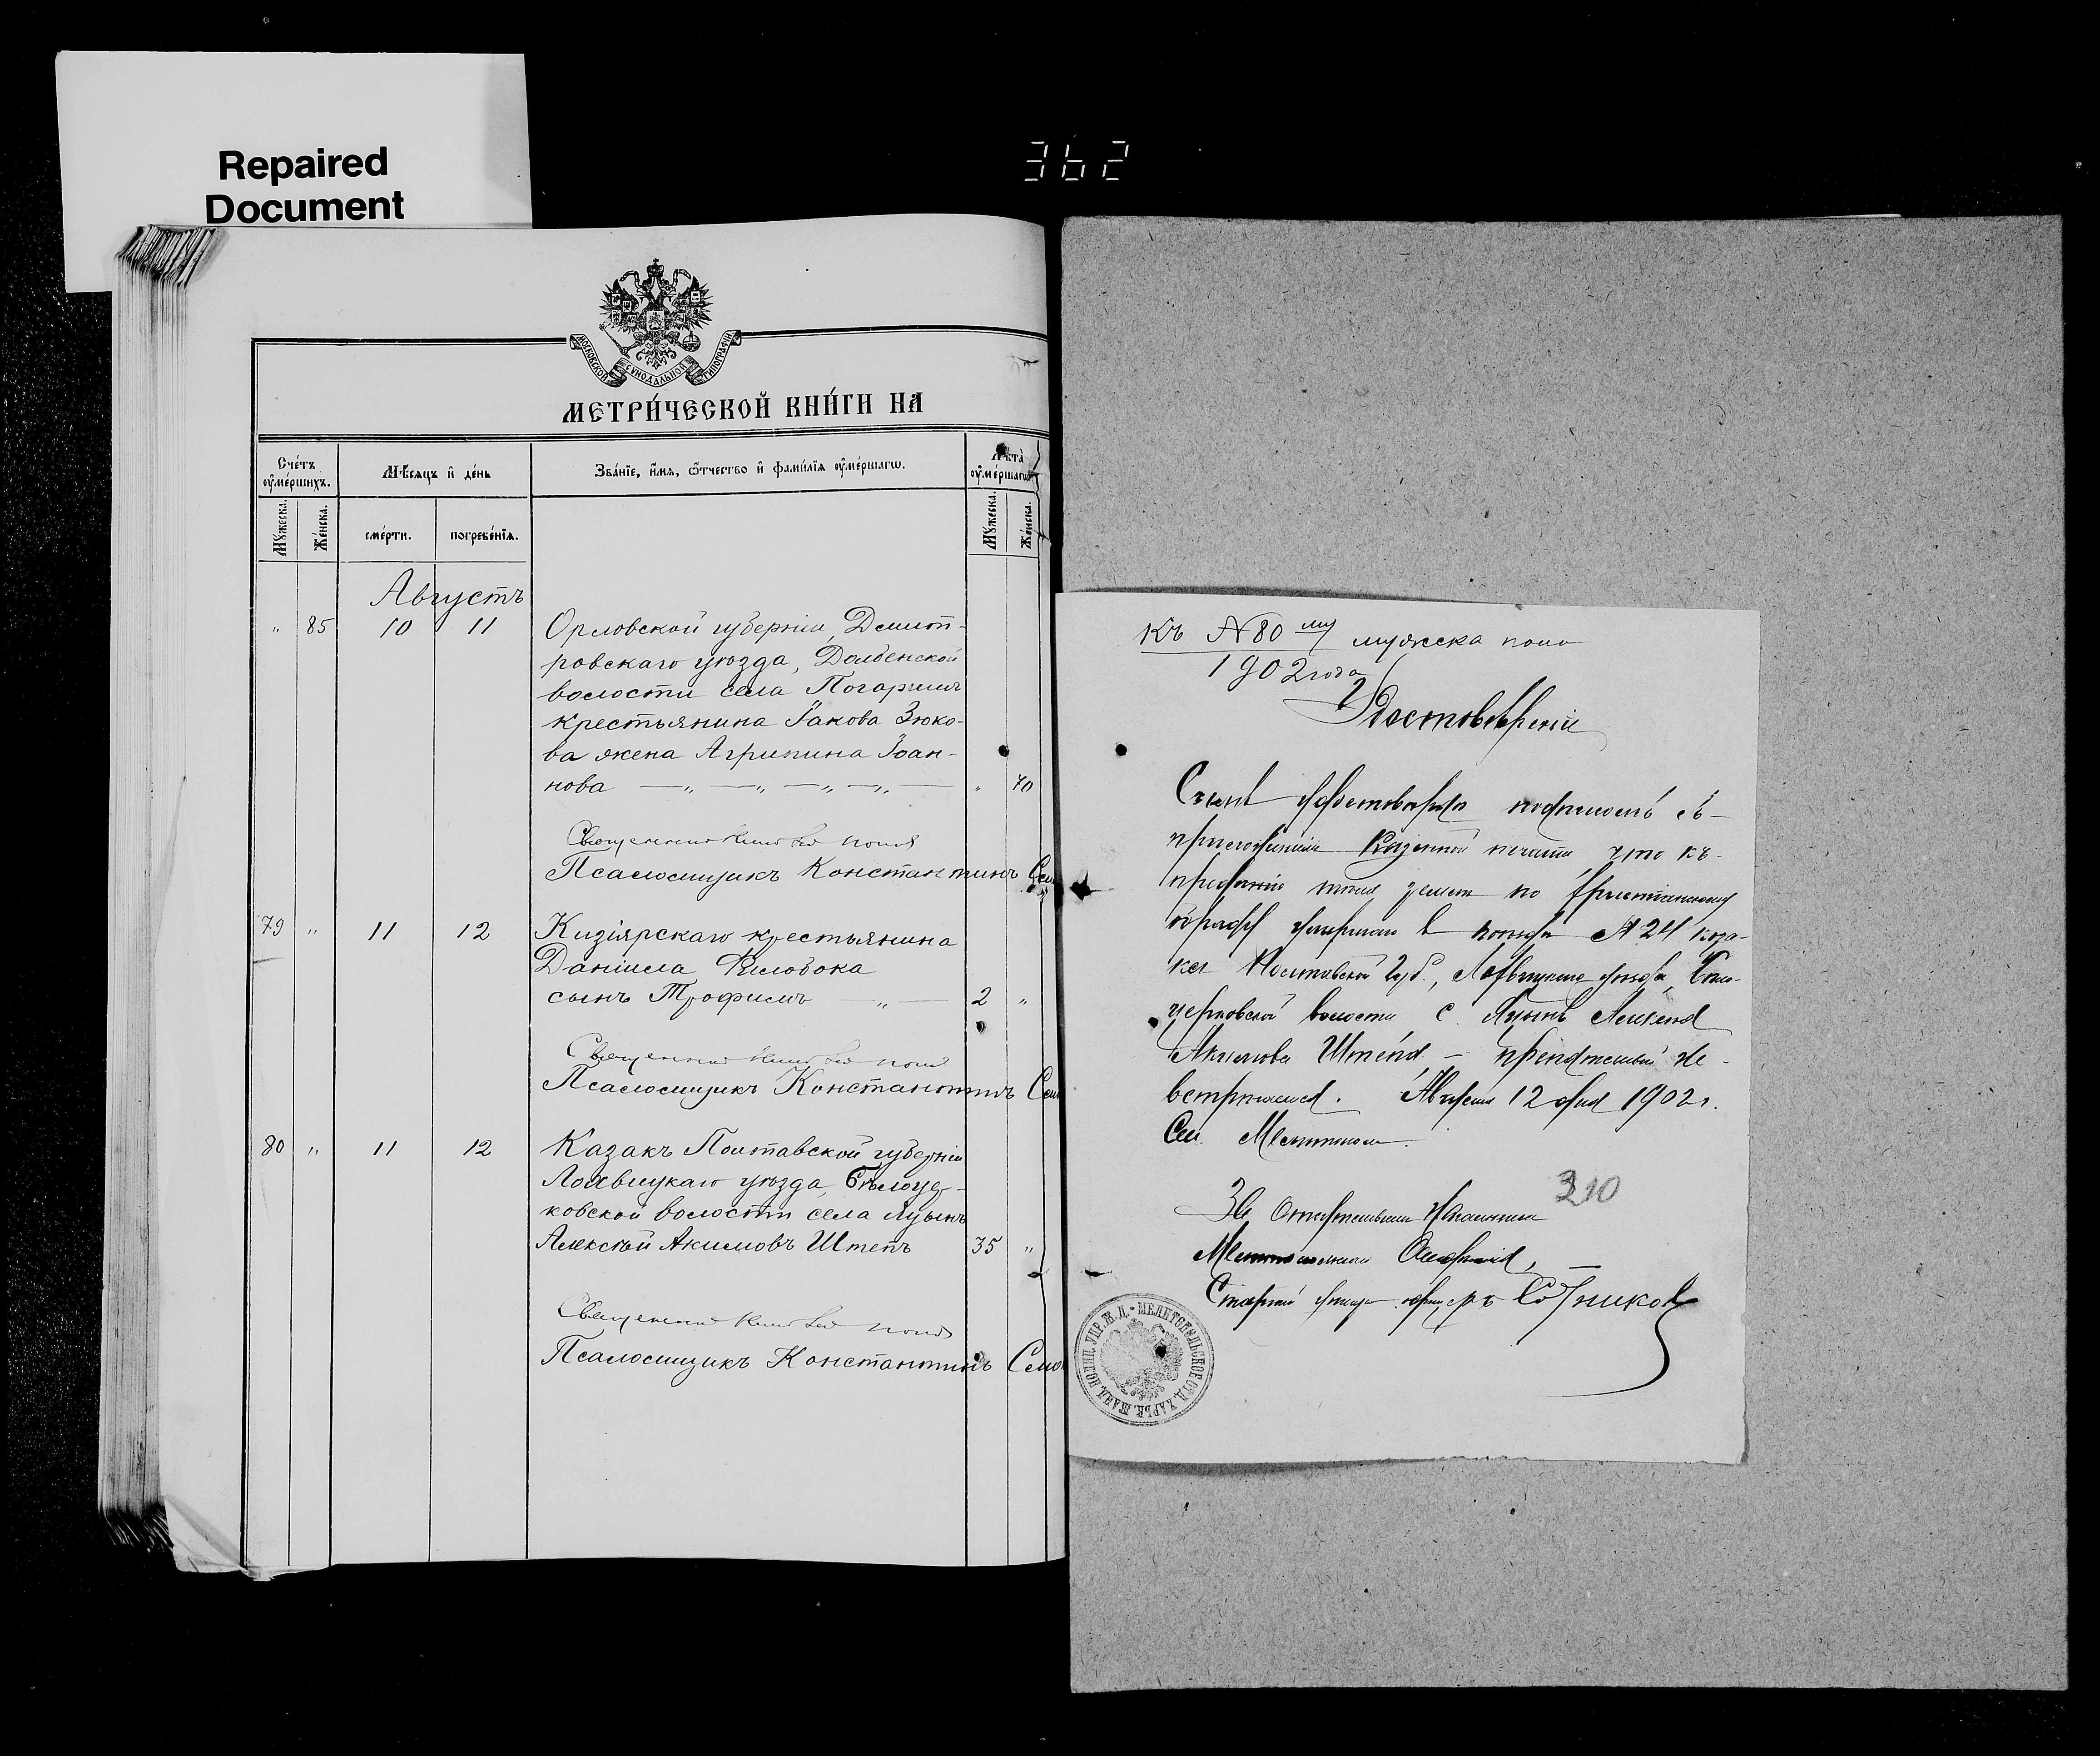 Repaired
Document
362
МОСКОВСКОЙ СѴНОДАЛЬНОЙ ТИПОГРАФІИ
МЕТРИ́ЧЕСКОЙ КНИ́ГИ НА
Сче́тъ оу҆ме́ршихъ.
Мѣсяцъ и҆ де́нь
Зва́нїе, и҆́мѧ, ѻ҆́тчество и҆ фами́лїѧ оу҆ме́ршагѡ.
Лѣта̀ оу҆ме́ршагѡ
Мꙋ́жеска.
Же́нска.
сме́рти.
погребе́нїѧ.
Мꙋ́жеска.
Же́нска.
Августъ
" 85 10 11 Орловской губерніи, Дмит-
ровскаго уѣзда, Долбенской
волости села Погарищъ
крестьянина Іакова Зюко-
ва жена Агрипина Іоан-
нова " 70
Священник
Псаломщикъ Константинъ Сем
79 " 11 12 Кизіярскаго крестьянина
Даніила Бѣлобока
сынъ Трофимъ 2 "
Священник
Псаломщикъ Константинъ Сем
80 " 11 12 Казакъ Полтавской губерніи
Лохвицкаго уѣзда, Бѣлоцер-
ковской волости села Яцынъ
Алексѣй Акимовъ Штепъ 35 "
Священник
Псаломщикъ Константинъ Семе
Къ № 80му мужеска пола
1902 года
Удостовѣреніе
Симъ удостовѣряю подписомъ съ
приложеніемъ Казенной печати что къ
преданію тѣла землѣ по христіанскому
обряду умершаго в поѣздѣ № 24 каза-
ка Полтавской Губ., Лохвицкаго уѣзда, Бѣло-
церковской волости с. Яцынъ Алексѣя
Акимова Штепа – препятствій не
встрѣчается. Августа 12 дня 1902 г.
Ст. Мелитополь.
310
За Отдѣленія Начальника
Мелитопольскаго Отдѣленія,
Старшій унтеръ-офицеръ Сотников
МЕЛИТОПОЛЬСКОЕ ОТД. ХАРЬК. ЖАНД. ПОЛИЦ. УПР. Ж. Д.